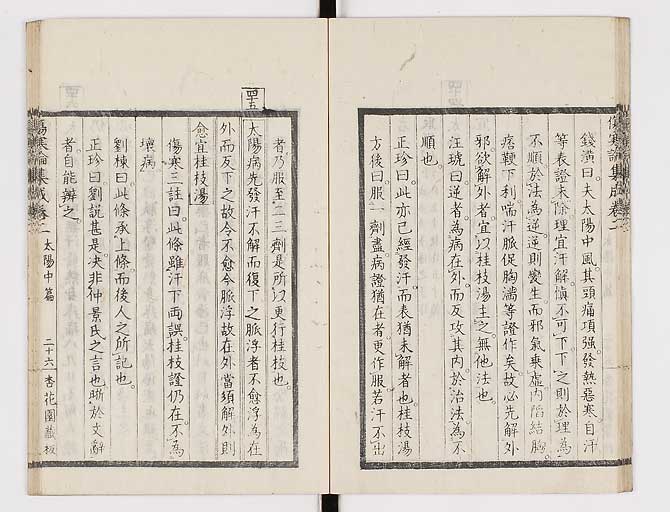 傷寒論集成卷二
錢潢曰夫太陽中風其頭痛項强發熱惡寒自汗
等表證未除理宜汗解愼不可下下之則於理爲
不順於法爲逆逆則變生而邪氣乘虛内陷結胸
痞鞕下利喘汗脈促胸滿等證作矣故必先解外
邪欲解外者宜以桂枝湯主之無他法也
汪琥曰逆者爲病在外而反攻其内於治法爲不
順也
正珍曰此亦已經發汗而表猶未解者也桂枝湯
方後曰服一劑盡病證猶在者更作服若汗不出
者乃服至二三劑是所以更行桂枝也
四十五
太陽病先發汗不解而復下之脈浮者不愈浮爲在
外而反下之故令不愈今脈浮故在外當須解外則
愈宜桂枝湯
傷寒三註曰此條雖汗下兩誤桂枝證仍在不爲
壞病
劉棟曰此條承上條而後人之所記也
正珍曰劉説甚是決非仲景氏之言也晰於文辭
者自能辨之
傷寒論集成卷二 太陽中篇 二十六 杏花園藏板